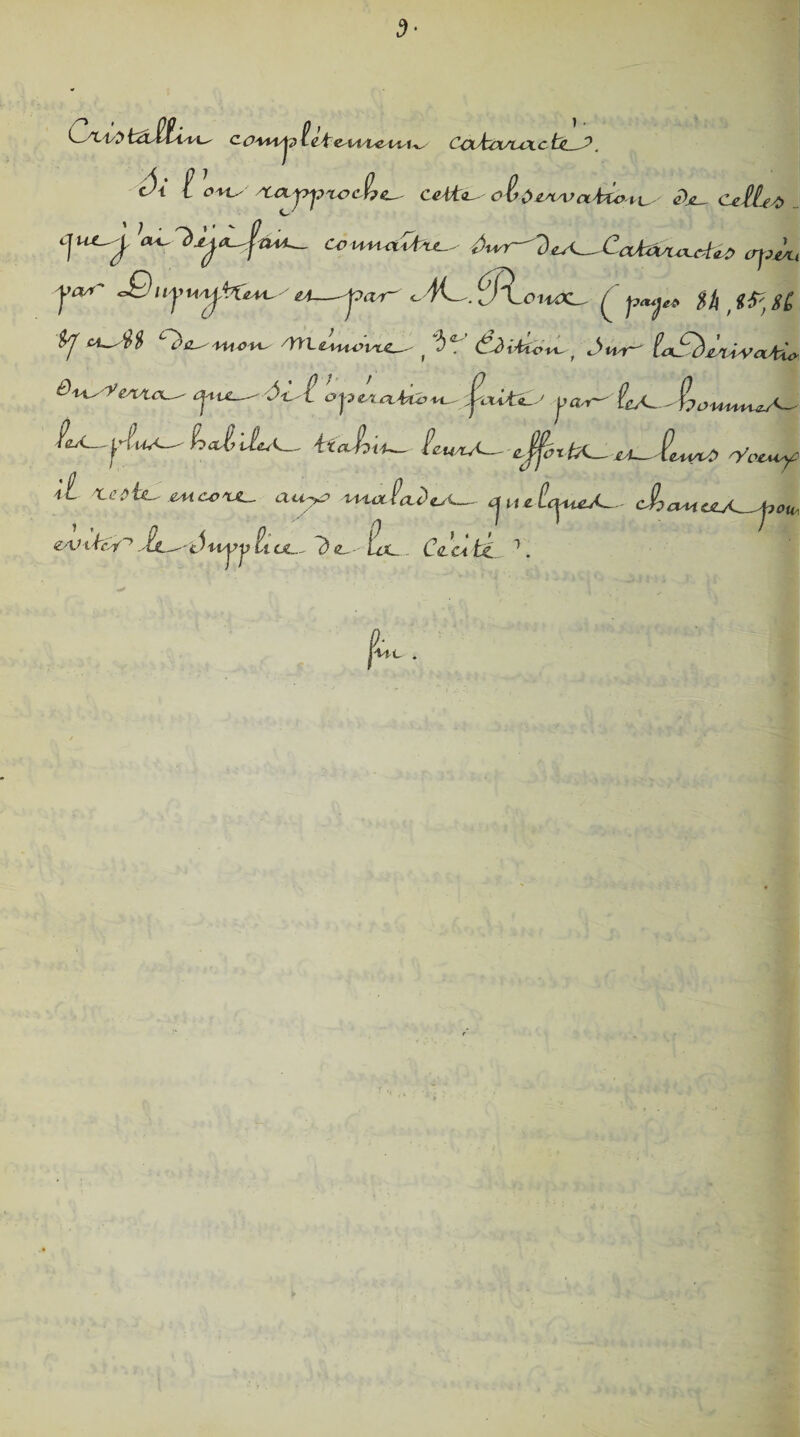 9.
Cristallin complètement cataracté ?.
Si l'on rapproche cette observation de celles
que j'ai déjà fait connaître sur des Cataractes opéré
par Dupuytren et par M. Roux (pages 84, 85, 86
87 et 88 de mon Mémoire, 3e Édition, sur la Dérivatio
On verra que si l'opération faite par les hommes
les plus habiles trahit leurs efforts et leurs vœux
il reste encore aux malades quelques chances pour
éviter le supplice de la Cécité ?.
fin.